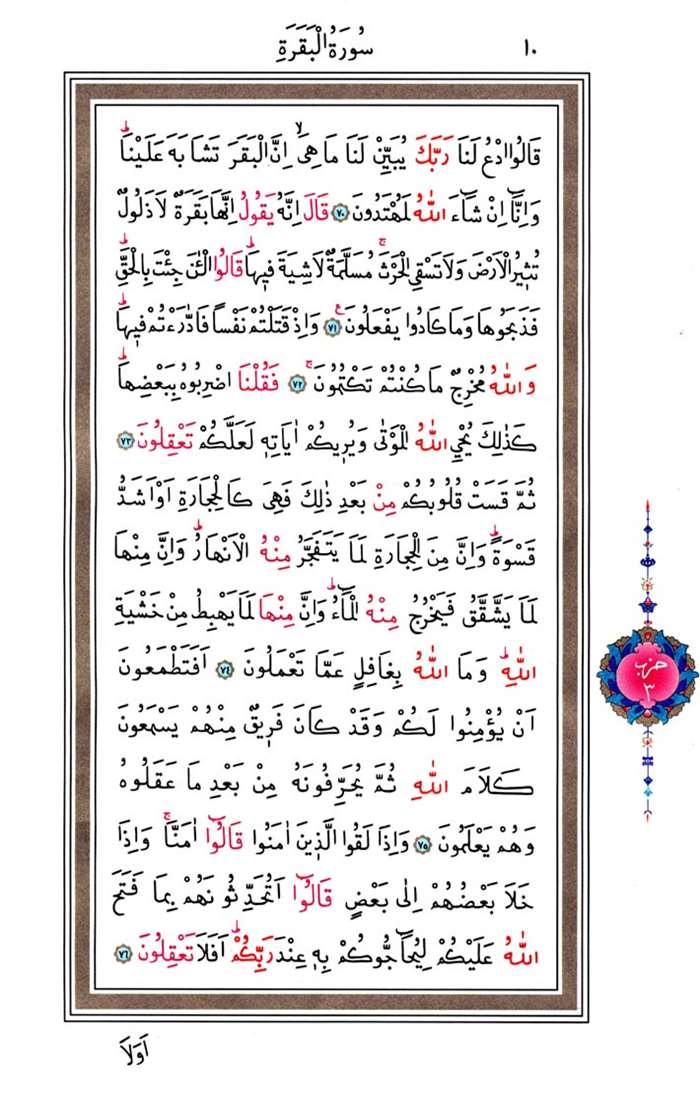 ١٠
سُورَةُ الْبَقَرَةِ
قَالُوا ادْعُ لَنَا رَبَّكَ يُبَيِّنْ لَنَا مَا هِىَۙ اِنَّ الْبَقَرَ تَشَابَهَ عَلَيْنَاۜ
وَاِنَّٓا اِنْ شَٓاءَ اللّٰهُ لَمُهْتَدُونَ ﴿٧٠﴾ قَالَ اِنَّهُ يَقُولُ اِنَّهَا بَقَرَةٌ لَا ذَلُولٌ
تُثٖيرُ الْاَرْضَ وَلَا تَسْقِى الْحَرْثَۚ مُسَلَّمَةٌ لَاشِيَةَ فٖيهَاۜ قَالُوا الْـٰٔنَ جِئْتَ بِالْحَقِّۜ
فَذَبَحُوهَا وَمَا كَادُوا يَفْعَلُونَ ﴿٧١﴾ وَاِذْ قَتَلْتُمْ نَفْساً فَادّٰرَءْتُمْ فٖيهَاۜ
وَاللّٰهُ مُخْرِجٌ مَا كُنْتُمْ تَكْتُمُونَۚ ﴿٧٢﴾ فَقُلْنَا اضْرِبُوهُ بِبَعْضِهَاۜ
كَذٰلِكَ يُحْيِ اللّٰهُ الْمَوْتٰى وَيُرٖيكُمْ اٰيَاتِهٖ لَعَلَّكُمْ تَعْقِلُونَ ﴿٧٣﴾
ثُمَّ قَسَتْ قُلُوبُكُمْ مِنْ بَعْدِ ذٰلِكَ فَهِىَ كَالْحِجَارَةِ اَوْ اَشَدُّ
قَسْوَةًۜ وَاِنَّ مِنَ الْحِجَارَةِ لَمَا يَتَفَجَّرُ مِنْهُ الْاَنْهَارُۜ وَاِنَّ مِنْهَا
لَمَا يَشَّقَّقُ فَيَخْرُجُ مِنْهُ الْمَٓاءُۜ وَاِنَّ مِنْهَا لَمَا يَهْبِطُ مِنْ خَشْيَةِ
اللّٰهِۜ وَمَا اللّٰهُ بِغَافِلٍ عَمَّا تَعْمَلُونَ ﴿٧٤﴾ اَفَتَطْمَعُونَ
اَنْ يُؤْمِنُوا لَكُمْ وَقَدْ كَانَ فَرٖيقٌ مِنْهُمْ يَسْمَعُونَ
كَلَامَ اللّٰهِ ثُمَّ يُحَرِّفُونَهُ مِنْ بَعْدِ مَا عَقَلُوهُ
وَهُمْ يَعْلَمُونَ ﴿٧٥﴾ وَاِذَا لَقُوا الَّذٖينَ اٰمَنُوا قَالُٓوا اٰمَنَّاۚ وَاِذَا
خَلَا بَعْضُهُمْ اِلٰى بَعْضٍ قَالُٓوا اَتُحَدِّثُونَهُمْ بِمَا فَتَحَ
اللّٰهُ عَلَيْكُمْ لِيُحَٓاجُّوكُمْ بِهٖ عِنْدَ رَبِّكُمْۜ اَفَلَا تَعْقِلُونَ ﴿٧٦﴾
حزب
٣
اَوَلَا